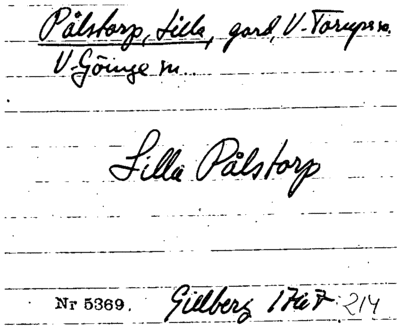 Pålstorp, Lilla, gård, V-Torups sn.
V-Göinge hd.
Lilla Pålstorp
Nr 5369. Gillberg 1767 214